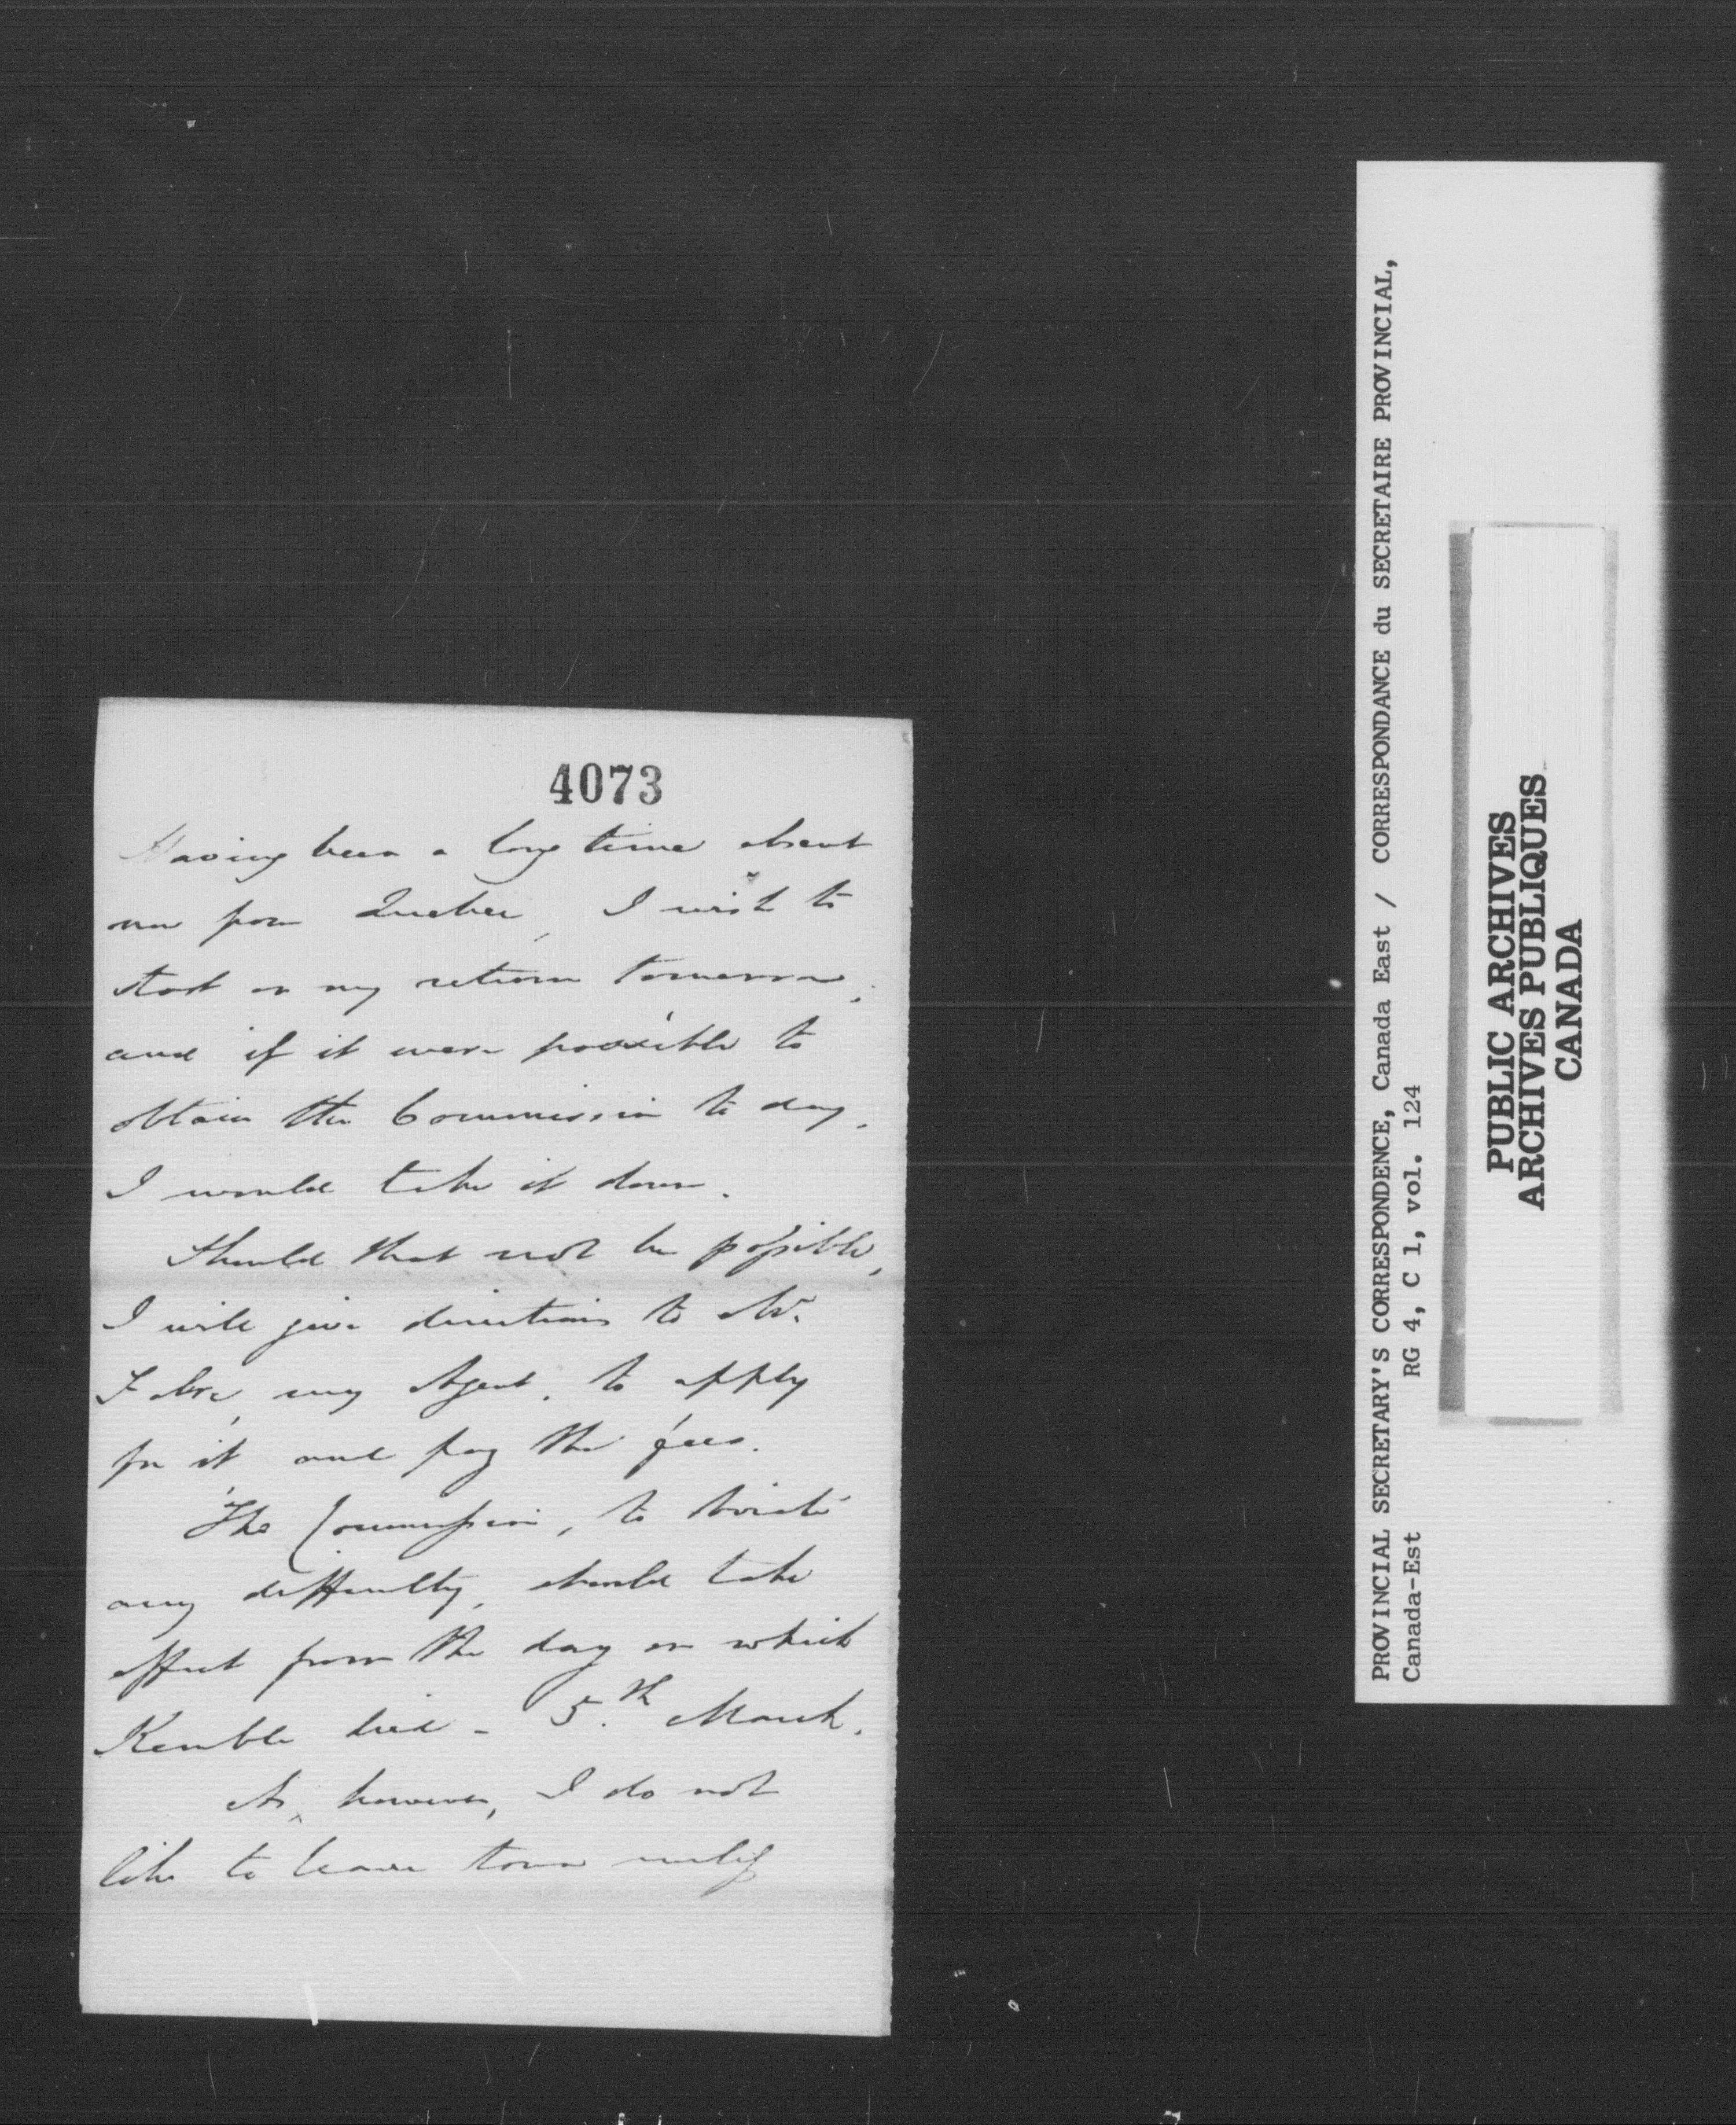 4073
Having been a long time absent
now from Quebec, I wish to
start on my return tomorrow,
and if it were possible to
obtain the Commission to day,
I would take it down.
Should that not be possible,
I will give directions to Mr.
Fabre, my Agent, to apply
for it and pay the fees.
The Commission, to obviate
any difficulty, should take
effect from the day on which
Kemble died - 5.th March.
As, however, I do not
like to leave town until
PROVINCIAL SECRETARY'S CORRESPONDENCE, Canada East / CORRESPONDANCE du SECRETAIRE PROVINCIAL,
Canada-Est RG 4, C 1, vol. 124
PUBLIC ARCHIVES
ARCHIVES PUBLIQUES
CANADA